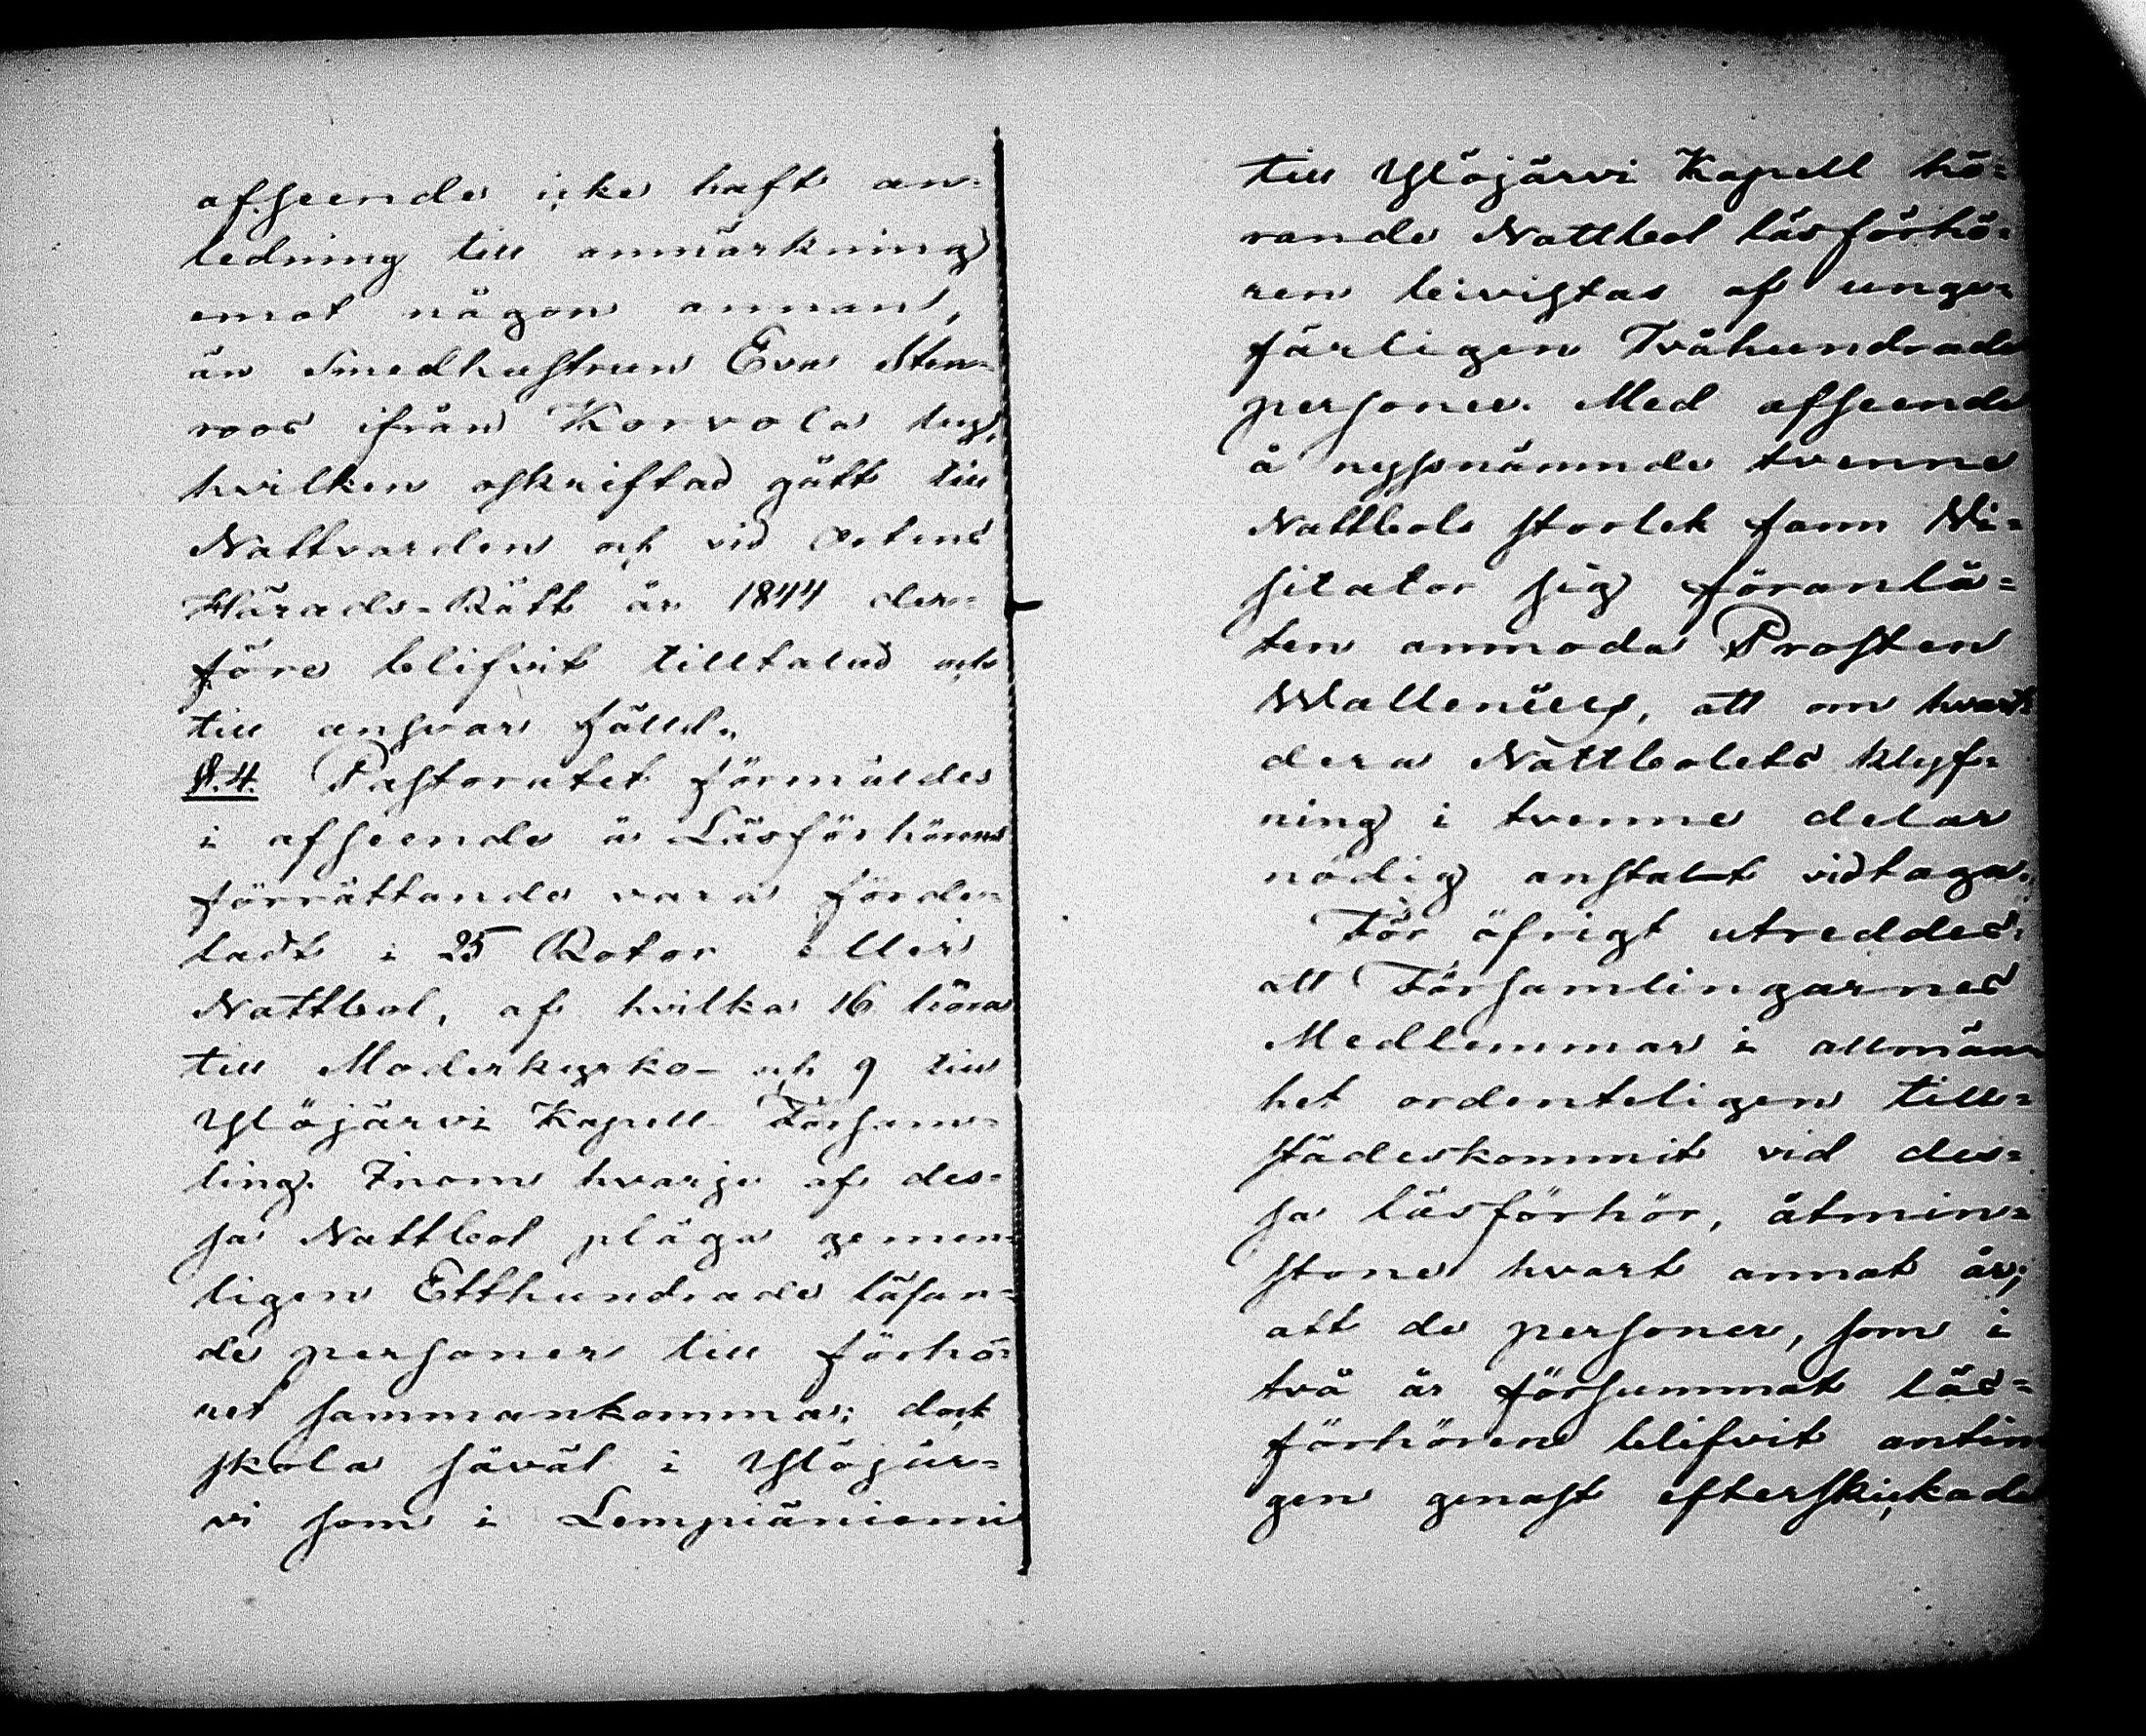 afseende icke haft an-
ledning till anmärkning
emot någon annan,
än Smedhustrun Eva Sten-
roos ifrån Korvola by,
hvilken oskriftad gått till
Nattvarden och vid Ortens
Härads-Rätt år 1844 der-
före blifvit tilltalad och
till ansvar fälld.
§.4. Pastoratet förmäldes
i afseende å Läsförhörens
förrättande vara förde-
ladt i 25 Rotor eller
Nattbol, af hvilka 16 höra
till Moderkyrko- och 9 till
Ylöjärvi Kapell-Försam-
ling. Inom hvarje af des-
sa Nattbol pläga gemen-
ligen Etthundrade läsan-
de personer till förhö-
ret sammankomma; dock
skola såväl i Ylöjär-
vi som i Lempiäniemi
till Ylöjärvi Kapell hö-
rande Nattbol läsförhö-
ren beivistas af unge-
färligen Tvåhundrade
personer. Med afseende
å nyssnämnde tvenne
Nattbols storlek fann Vi-
sitator sig föranlå-
ten anmoda Prosten
Wallenius, att om hvar-
dera Nattbolets klyf-
ning i tvenne delar
nödig anstalt vidtaga.
För öfrigt utreddes:
att Församlingarnes
Medlemmar i allmän-
het ordenteligen till-
städeskommit vid des-
sa läsförhör, åtmin-
stone hvart annat år;
att de personer, som i
två år försummat läs-
förhören blifvit antin
gen genast efterskickade